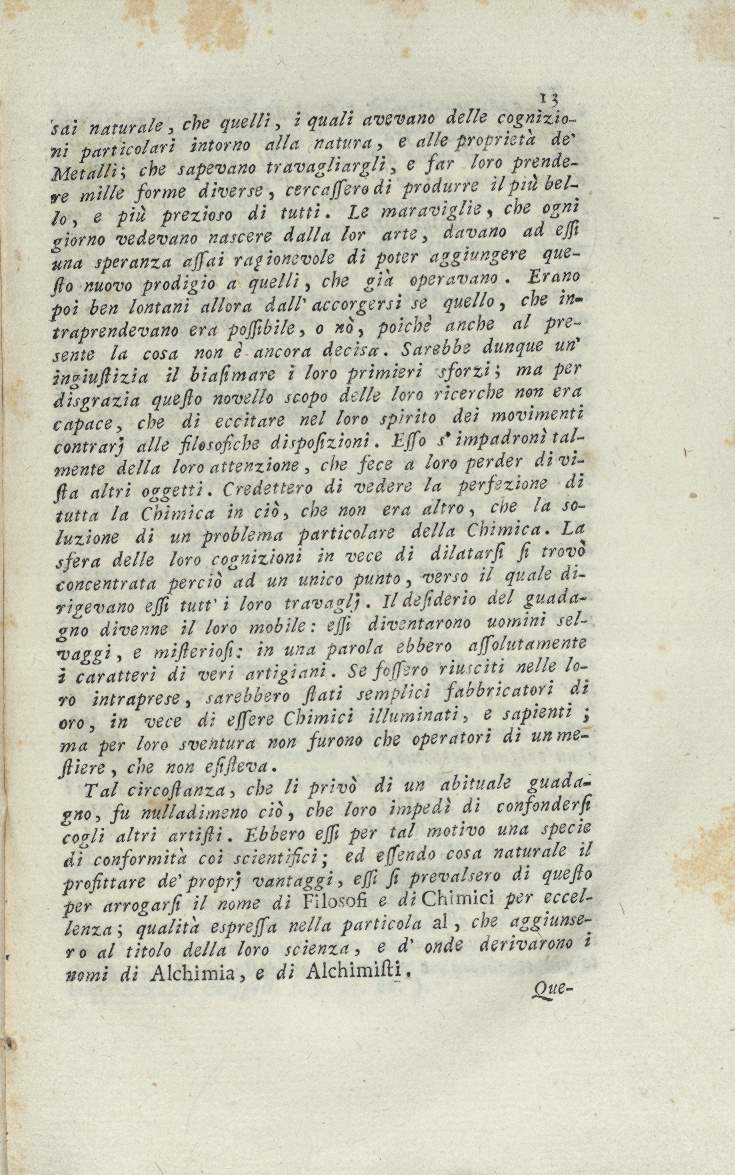 13
sai naturale, che quelli, i quali avevano delle cognizio-
ni particolari intorno alla natura, e alle proprietà de'
Metalli; che sapevano travagliargli, e far loro prende-
re mille forme diverse, cercaſſero di produrre il più bel-
lo, e più prezioso di tutti. Le maraviglie, che ogni
giorno vedevano nascere dalla lor arte, davano ad eſſi
una speranza aſſai ragionevole di poter aggiungere que-
ſto nuovo prodigio a quelli, che già operavano. Erano
poi ben lontani allora dall' accorgersi se quello, che in-
traprendevano era poſſibile, o nò, poichè anche al pre-
sente la cosa non è ancora decisa. Sarebbe dunque un'
ingiuſtizia il biaſimare i loro primieri sforzi; ma per
disgrazia queſto novello scopo delle loro ricerche non era
capace, che di eccitare nel loro spirito dei movimenti
contrarj alle filosofiche dispoſizioni. Eſſo s' impadronì tal-
mente della loro attenzione, che fece a loro perder di vi-
ſta altri oggetti. Credettero di vedere la perfezione di
tutta la Chimica in ciò, che non era altro, che la so-
luzione di un problema particolare della Chimica. La
sfera delle loro cognizioni in vece di dilatarſi ſi trovò
concentrata perciò ad un unico punto, verso il quale di-
rigevano eſſi tutt' i loro travaglj. Il deſiderio del guada-
gno divenne il loro mobile: eſſi diventarono uomini sel-
vaggi, e miſterioſi: in una parola ebbero aſſolutamente
i caratteri di veri artigiani. Se foſſero riusciti nelle lo-
ro intraprese, sarebbero ſtati semplici fabbricatori di
oro, in vece di eſſere Chimici illuminati, e sapienti;
ma per loro sventura non furono che operatori di un me-
ſtiere, che non eſiſteva.
Tal circoſtanza, che li privò di un abituale guada-
gno, fu nulladimeno ciò, che loro impedì di confonderſi
cogli altri artiſti. Ebbero eſſi per tal motivo una specie
di conformità coi scientifici; ed eſſendo cosa naturale il
profittare de' proprj vantaggi, eſſi ſi prevalsero di queſto
per arrogarſi il nome di Filosofi e di Chimici per eccel-
lenza; qualità espreſſa nella particola al, che aggiunse-
ro al titolo della loro scienza, e d' onde derivarono i
nomi di Alchimia, e di Alchimiſti.
Que-